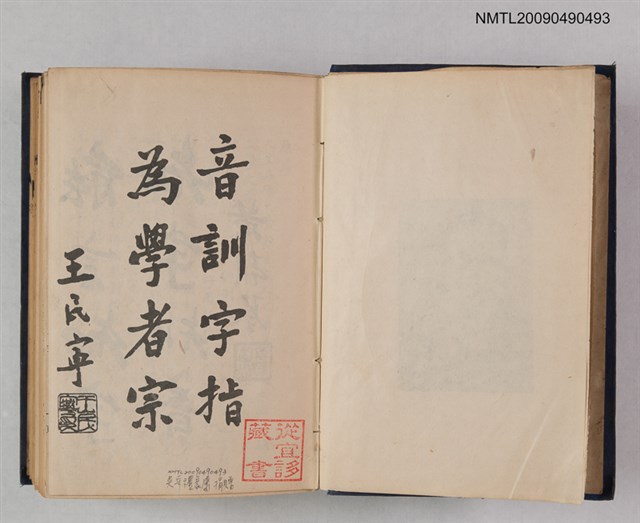 NMTL20090490493
音訓字指
為學者宗
王民寧
從宜誃
藏書